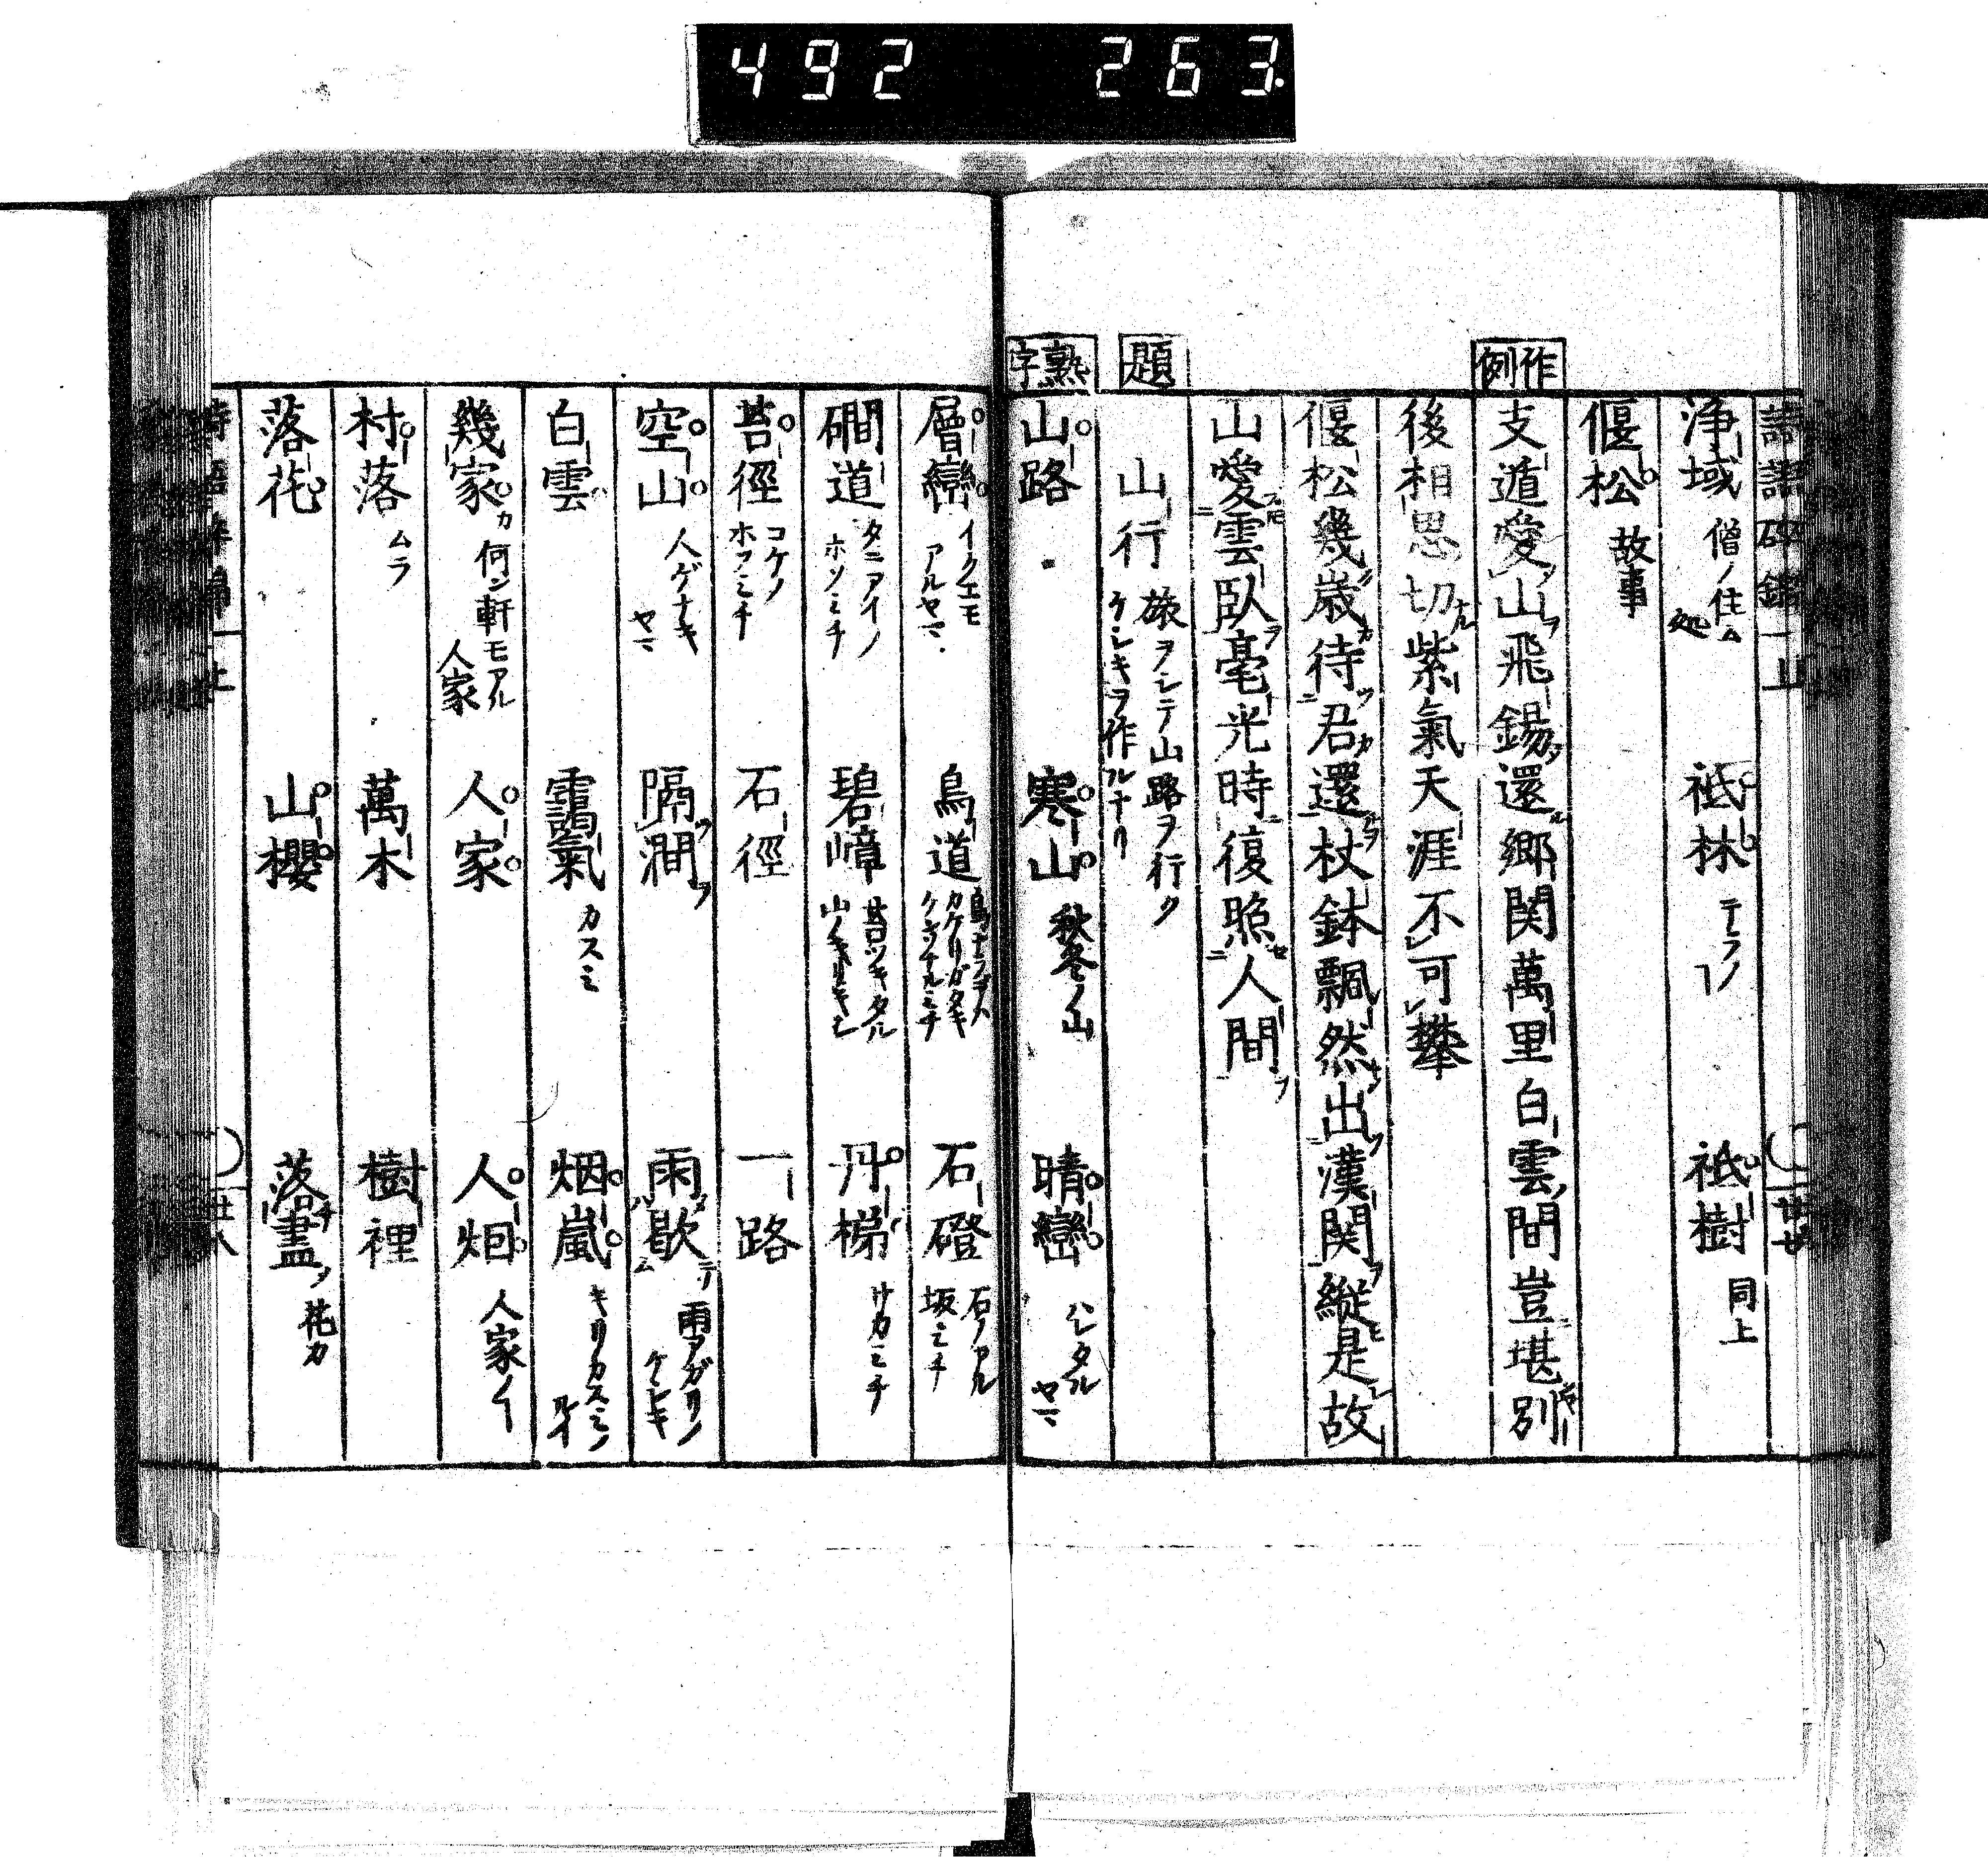 492 263
詩語砕錦 一 山
淨域 僧ノ住ム処 祗林 テラノヿ 祗樹 同上
偃松 故事
作例
支遁愛山飛錫還郷関萬里白雲間豈堪別
後相思切紫氣天涯不可攀
偃松幾歳待君還杖鉢飄然出漢関縦是故
山愛雲臥毫光時復照人間
題
山行 旅ヲシテ山路ヲ行クケシキヲ作ルナリ
熟字
山路 寒山 秋冬ノ山 晴巒 ハレタルヤマ
層巒 イクエモアルヤマ 鳥道 石磴 石ノアル坂ミチ
磵道 タニアイノホソミチ 碧嶂 丹梯 サカミチ
苔徑 コケノホソミチ 石徑 一路
空山 人ゲナキヤマ 隔澗 雨歇 雨アガリノケシキ
白雲 靄氣 カスミ 烟嵐 キリカスミノルイ
幾家 何ン軒モアル人家 人家 人烟 人家ノヿ
村落 ムラ 萬木 樹裡
落花 山櫻 落盡 花カ